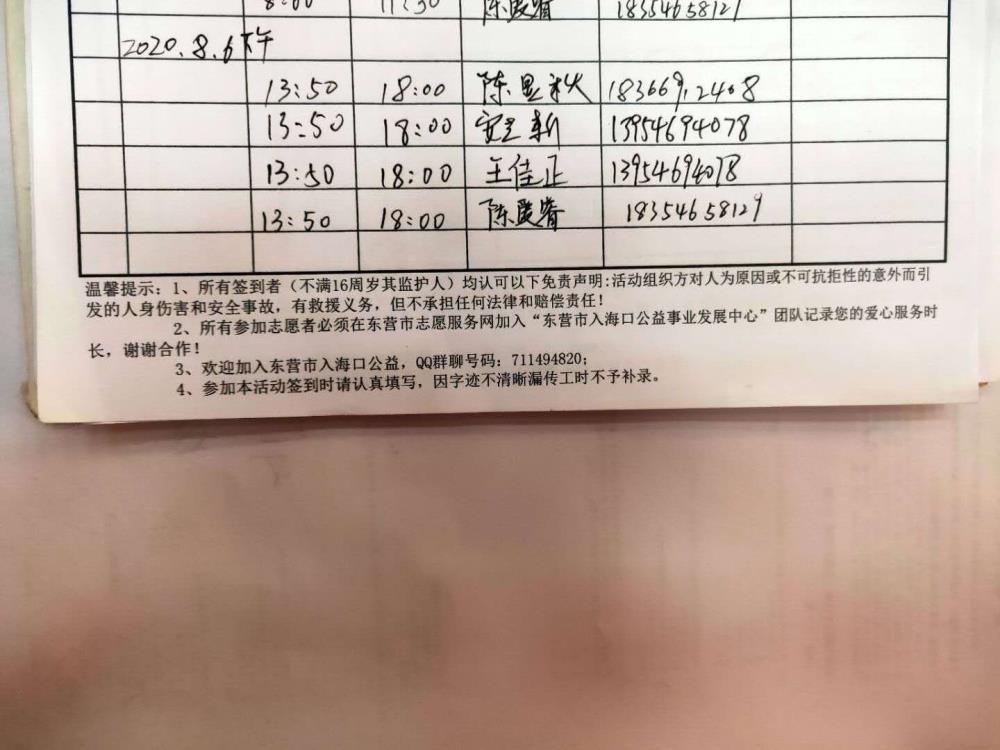 8:00 11:30 陈 18354658129
2020.8.6下午
13:50 18:00 陈显秋 18366912408
13:50 18:00 安立新 13954694078
13:50 18:00 王佳正 13954694078
13:50 18:00 陈 18354658129
温馨提示：1、所有签到者（不满16周岁其监护人）均认可以下免责声明：活动组织方对人为原因或不可抗拒性的意外而引
发的人身伤害和安全事故，有救援义务，但不承担任何法律和赔偿责任！
2、所有参加志愿者必须在东营市志愿服务网加入“东营市入海口公益事业发展中心”团队记录您的爱心服务时
长，谢谢合作！
3、欢迎加入东营市入海口公益，QQ群聊号码：711494820；
4、参加本活动签到时请认真填写，因字迹不清晰漏传工时不予补录。